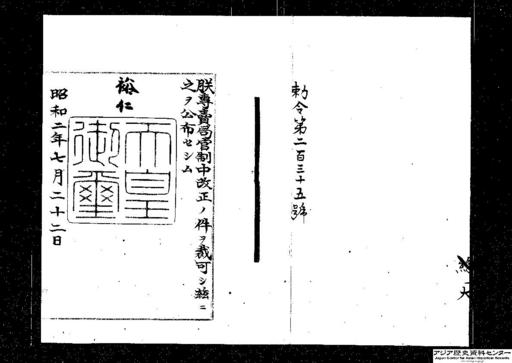 勅令第二百三十五號
朕專賣局官制中改正ノ件ヲ裁可シ玆ニ
之ヲ公布セシム
裕仁
天皇御璽
昭和二年七月二十二日
アジア歴史資料センター
Japan Center for Asian Historical Records